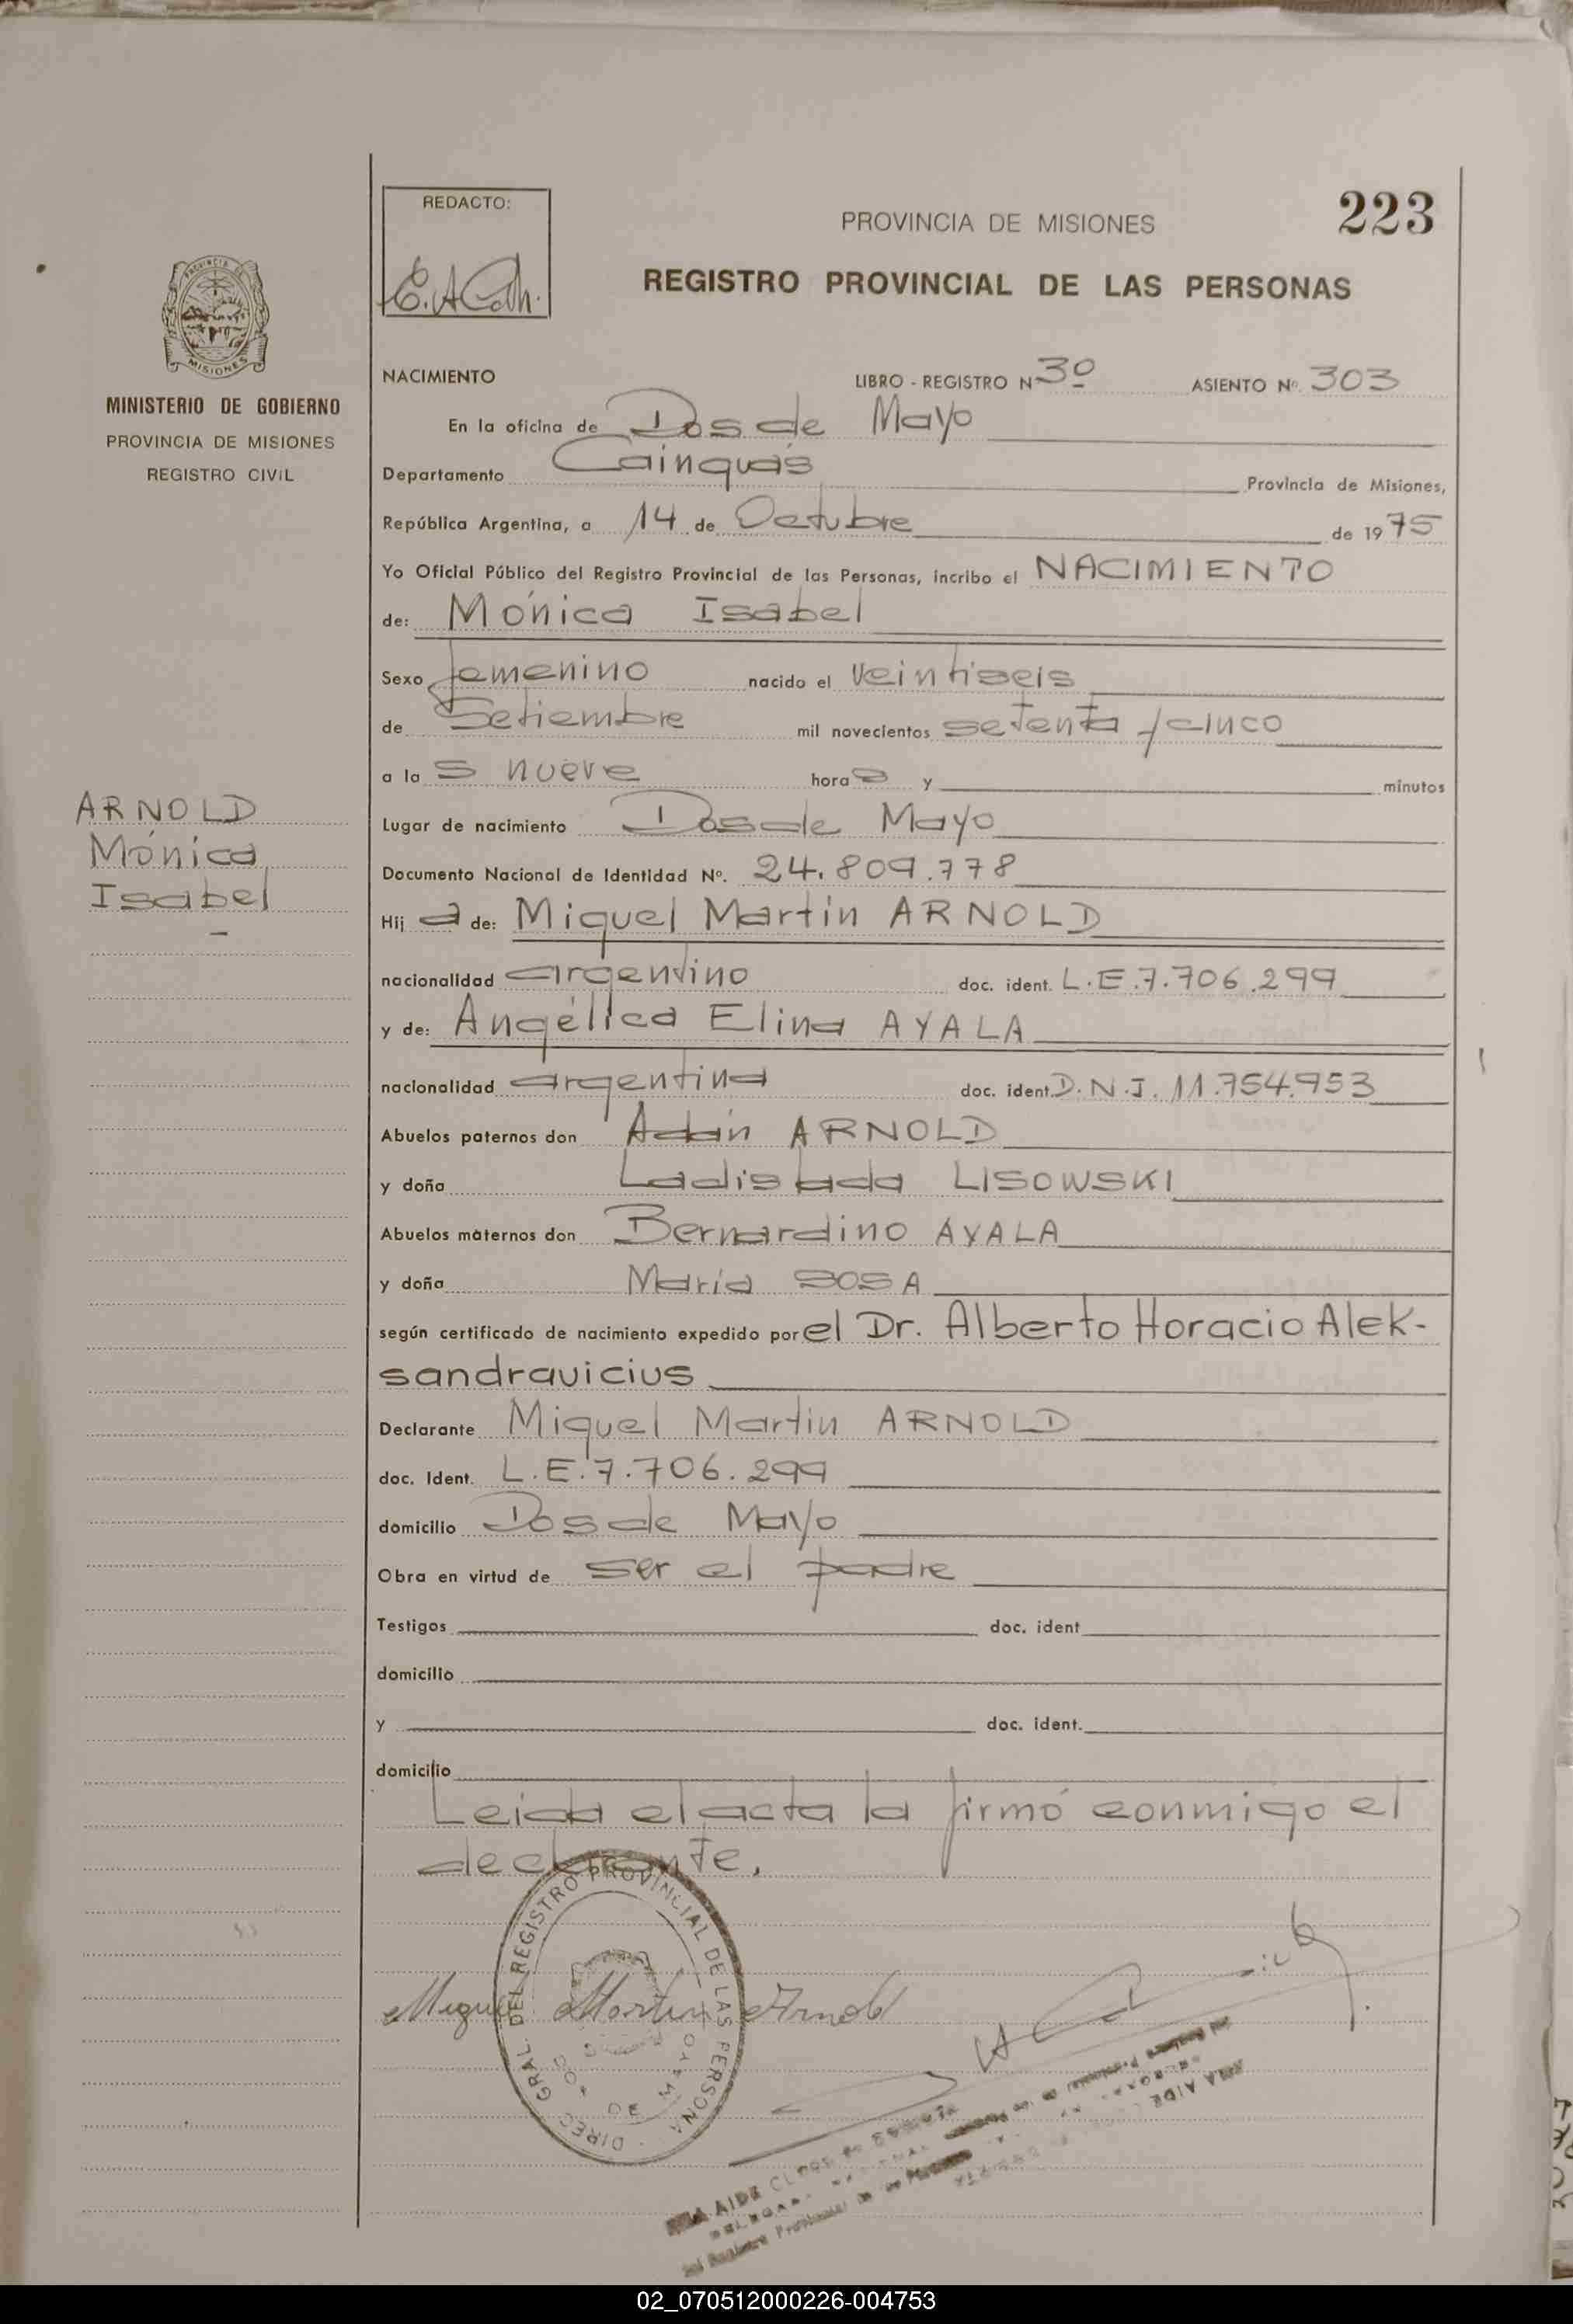 REDACTO:
PROVINCIA DE MISIONES
223
REGISTRO PROVINCIAL DE LAS PERSONAS
MISIONES
MINISTERIO DE GOBIERNO
PROVINCIA DE MISIONES
REGISTRO CIVIL
NACIMIENTO LIBRO - REGISTRO Nº 3º ASIENTO Nº 303
En la oficina de Dos de Mayo
Departamento Cainguás Provincia de Misiones,
República Argentina, a 14 de Octubre de 1975
Yo Oficial Público del Registro Provincial de las Personas, incribo el NACIMIENTO
de: Mónica Isabel
Sexo femenino nacido el veintiseis
de Setiembre mil novecientos setenta y cinco
a la s nueve hora s y minutos
Lugar de nacimiento Dos de Mayo
Documento Nacional de Identidad Nº. 24.809.778
ARNOLD
Mónica
Isabel
Hij a de: Miguel Martin ARNOLD
nacionalidad argentino doc. ident. L.E.7.706.299
y de: Angélica Elina AYALA
nacionalidad argentina doc. ident. D.N.I. 11.754.953
Abuelos paternos don Adán ARNOLD
y doña Ladislada LISOWSKI
Abuelos maternos don Bernardino AYALA
y doña María SOSA
según certificado de nacimiento expedido por el Dr. Alberto Horacio Alek-
sandravicius
Declarante Miguel Martin ARNOLD
doc. Ident. L.E.7.706.299
domicilio Dos de Mayo
Obra en virtud de ser el padre
Testigos doc. ident
domicilio
y doc. ident.
domicilio
Leida el acta la firmó conmigo el
declarante.
DIREC. GRAL. DEL REGISTRO PROVINCIAL DE LAS PERSONA
DOS DE MAYO
Miguel Martin Arnold
02_070512000226-004753